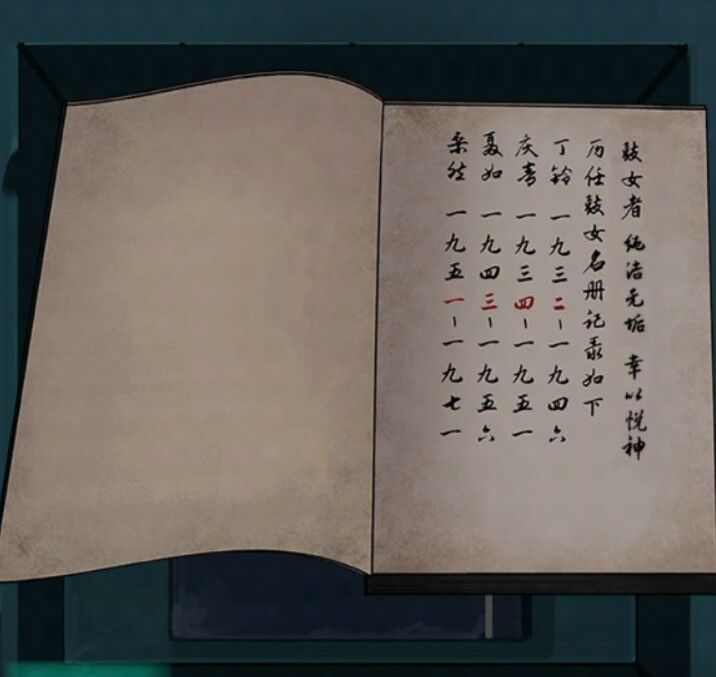 鼓女者 纯洁无垢 幸以悦神
历任鼓女名册记录如下
丁铃 一九三二-一九四六
庆春 一九三四-一九五一
聂如 一九四三-一九五六
桑然 一九五一-一九七一